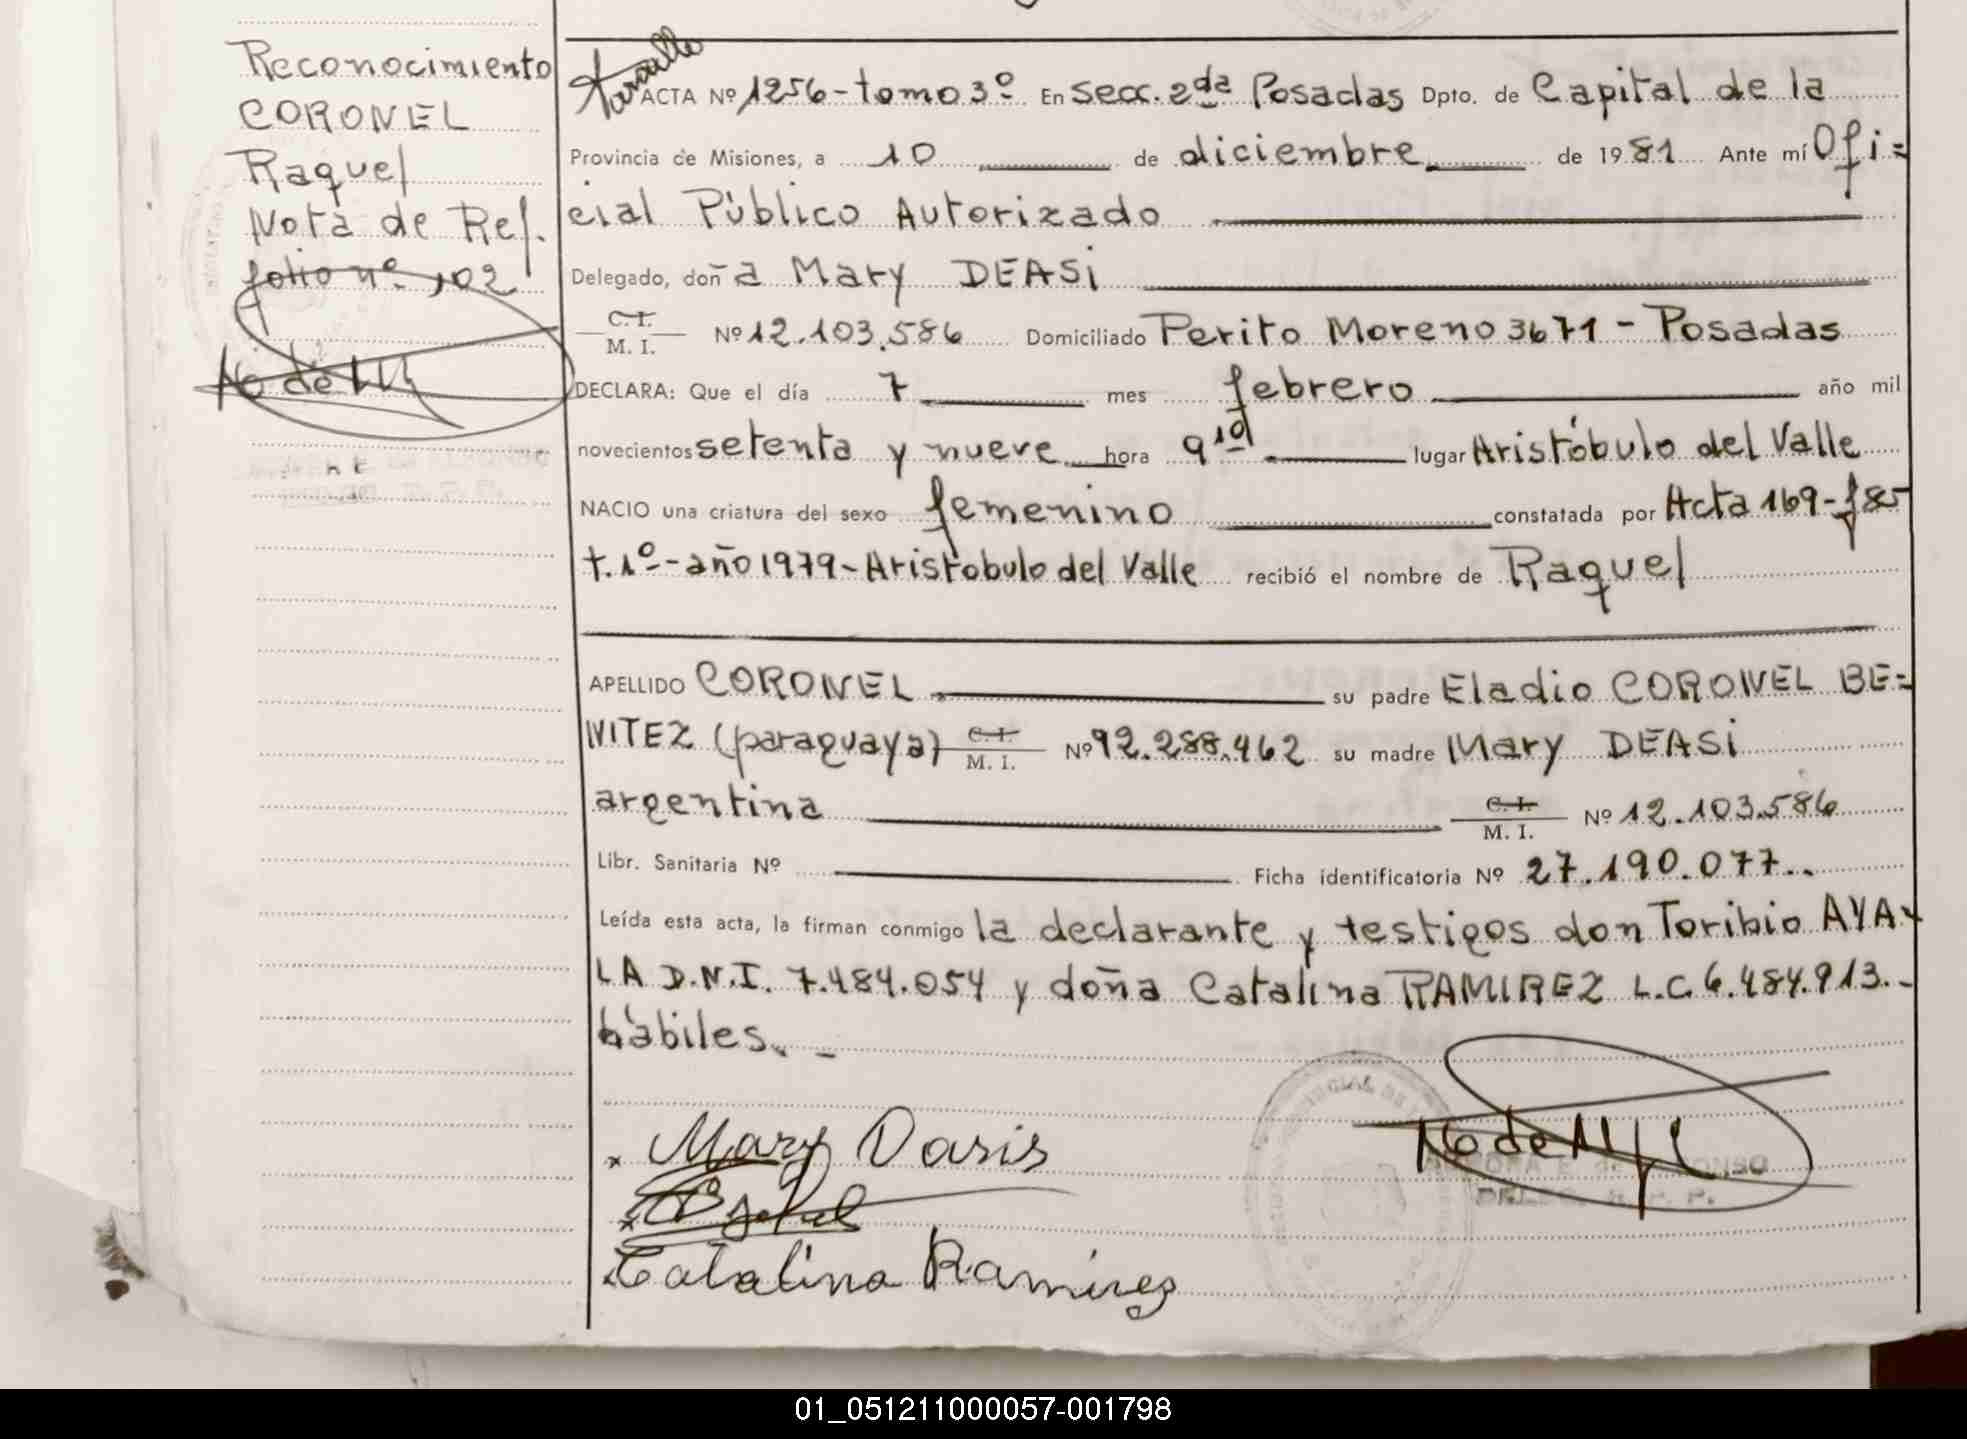 Reconocimiento
CORONEL
Raquel
Nota de Ref.
folio nº 102
ACTA Nº 1256 - tomo 3º En Secc. 2da Posadas Dpto. de Capital de la
Provincia de Misiones, a 10 de diciembre de 1981 Ante mí Ofi=
cial Público Autorizado
Delegado, doña Mary DEASI
C.I. M. I. Nº 12.103.586 Domiciliado Perito Moreno 3671 - Posadas
DECLARA: Que el día 7 mes febrero año mil
novecientos setenta y nueve hora 9 10 lugar Aristóbulo del Valle
NACIO una criatura del sexo femenino constatada por Acta 169 - f 85
t. 1º - año 1979 - Aristobulo del Valle recibió el nombre de Raquel
APELLIDO CORONEL su padre Eladio CORONEL BE=
NITEZ (paraguaya) C.I. M. I. Nº 92.288.462 su madre Mary DEASI
argentina C.I. M. I. Nº 12.103.586
Libr. Sanitaria Nº Ficha identificatoria Nº 27.190.077..
Leída esta acta, la firman conmigo la declarante y testigos don Toribio AYA-
LA D.N.I. 7.484.054 y doña Catalina RAMIREZ L.C. 6.484.913.-
hábiles. -
Mary Dasis
Catalina Ramirez
01_051211000057-001798